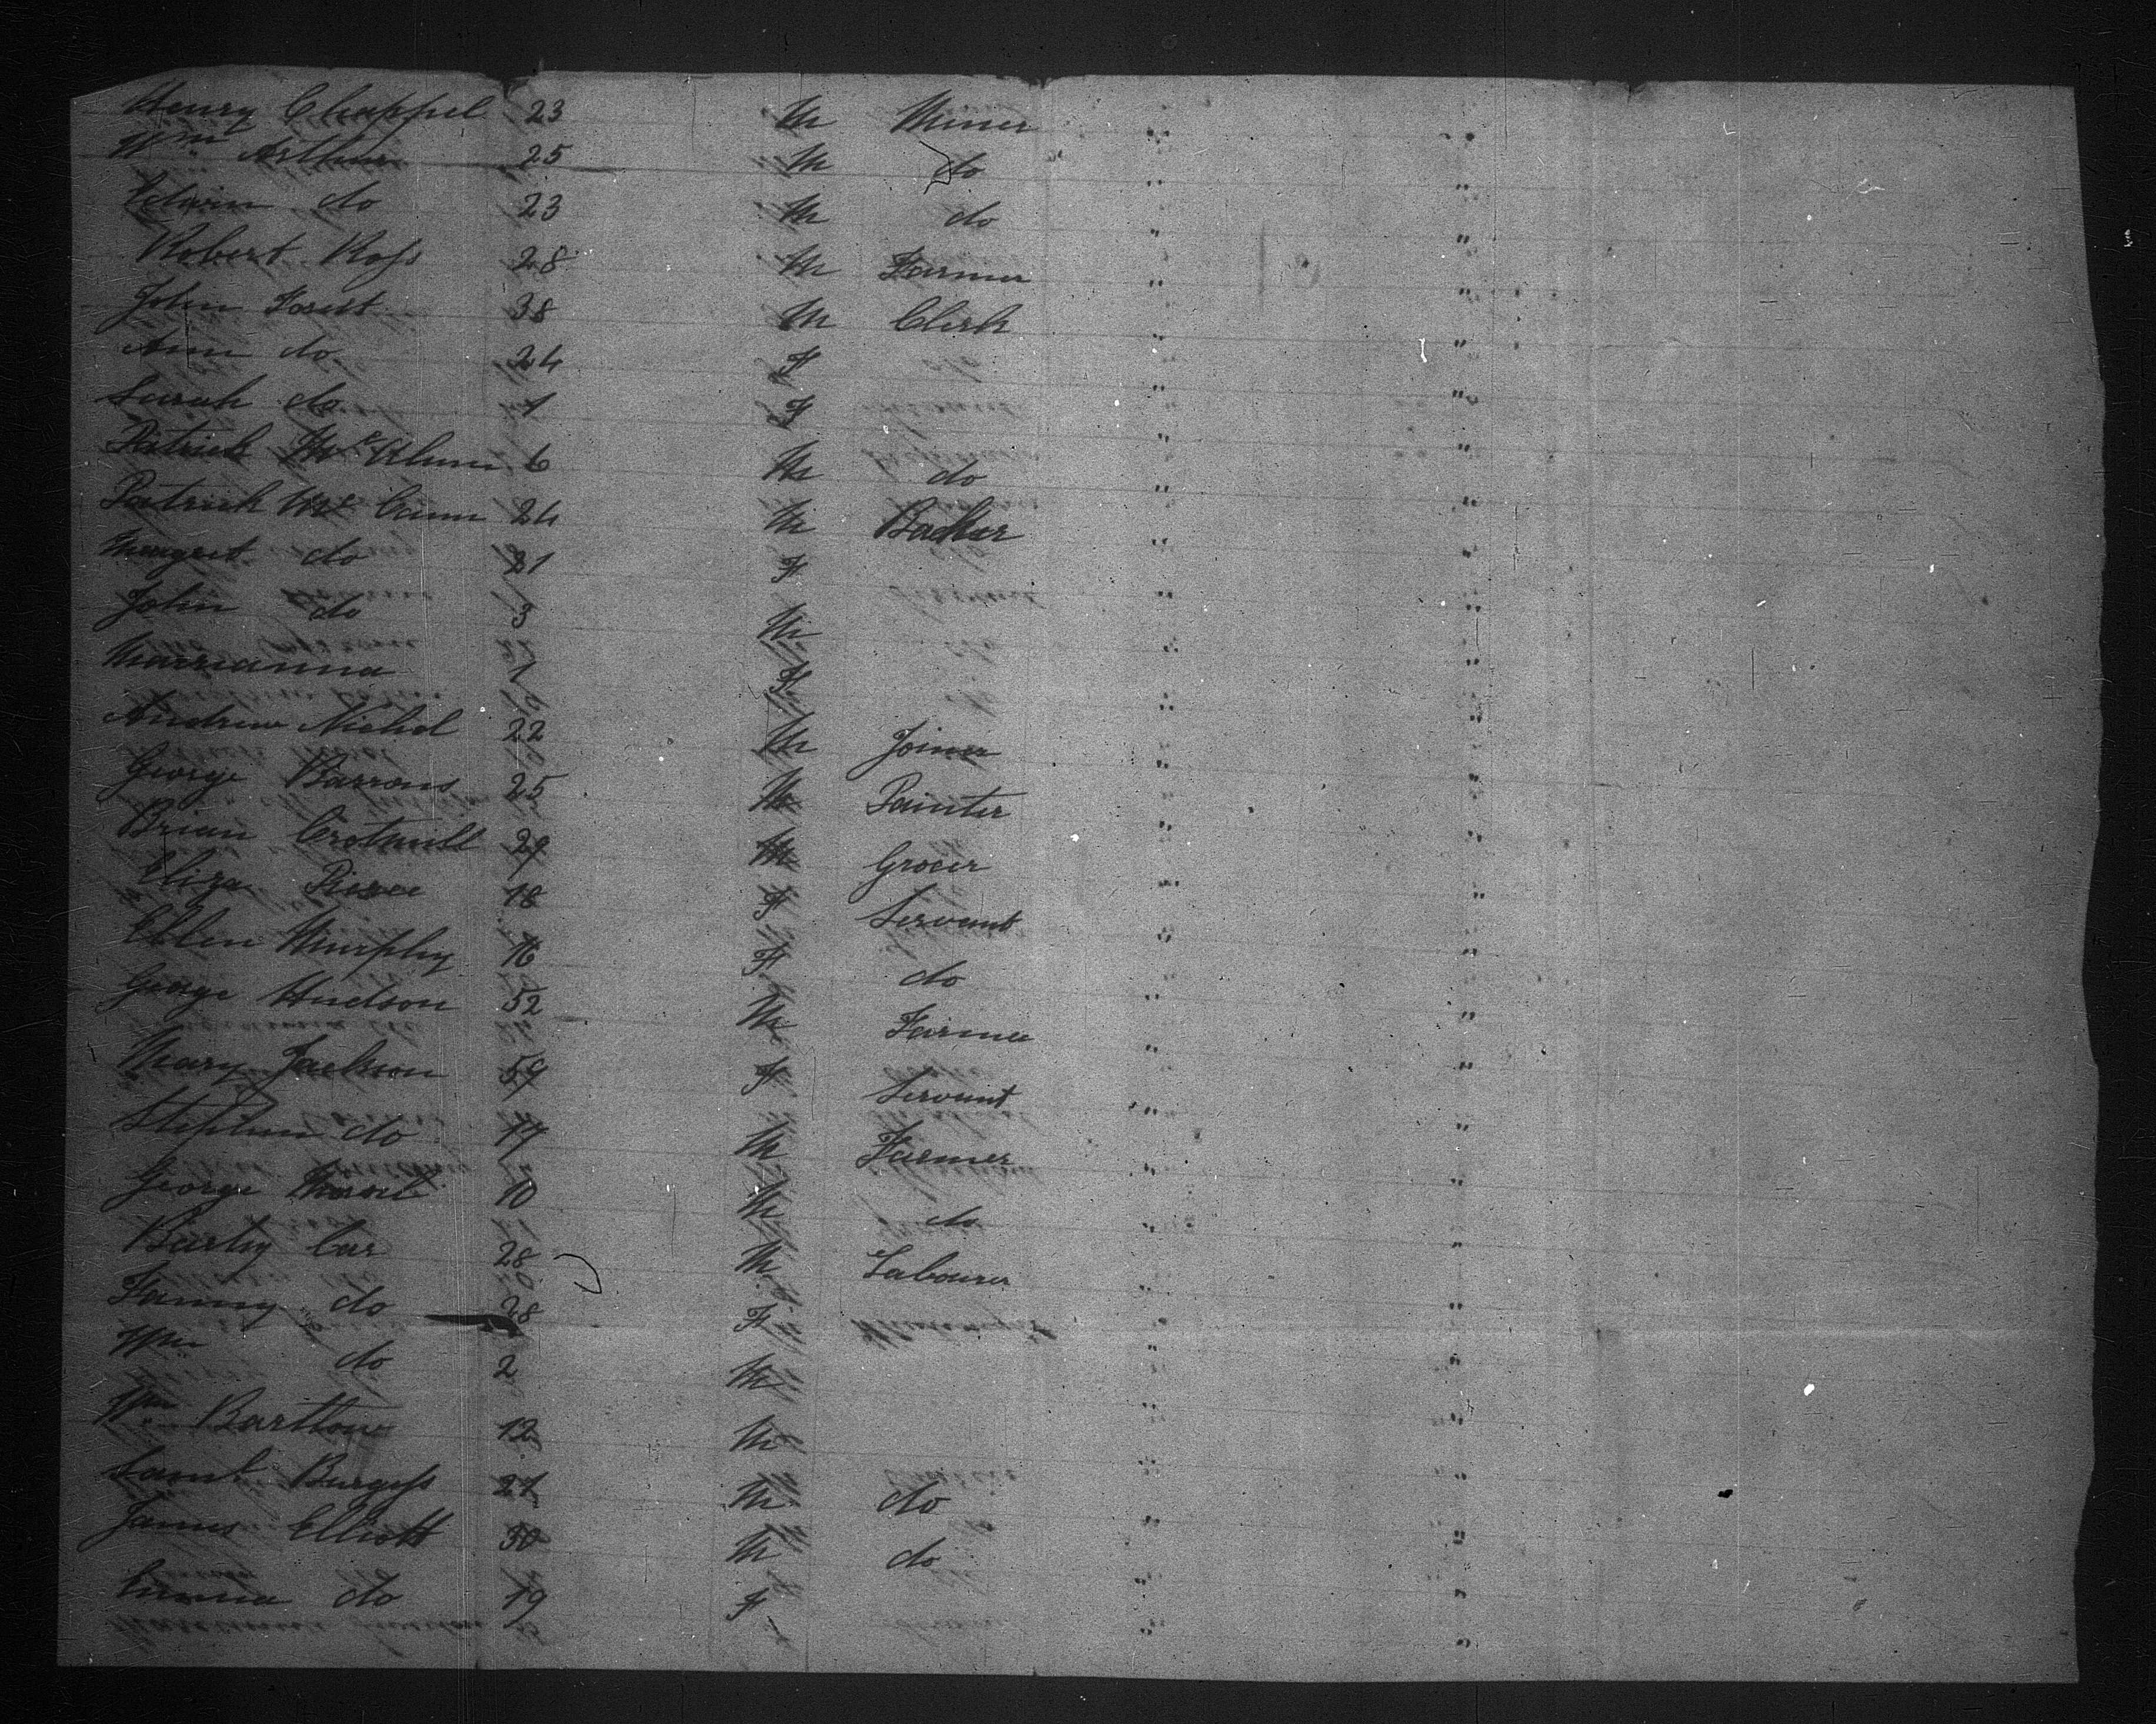 Henry Chappel 23 M Miner " "
Wm Arthur 25 M do " "
Edwin do 23 M do " "
Robert Ross 28 M Farmer " "
John Forest 38 M Clerk " "
Ann do 24 F " "
Sarah do 1 F " "
Patrick McGlunn 6 M do " "
Patrick McCann 24 M " "
Margret do 21 F " "
John do 3 M " "
Marrianna F " "
Andrew Nichol 22 M Joiner " "
George Barrons 25 M Painter " "
Brian 29 M Grocer " "
Eliza Pierce 18 F Servant " "
Ellen Murphy 16 F do " "
George Hudson 52 M Farmer " "
Mary Jackson 59 F Servant " "
Stephen do 17 M Farmer " "
George 10 M do " "
Car 28 M Labourer " "
Fanny do 28 F " "
Wm do 2 M " "
Wm Barttow 12 M " "
Saml Burgess 27 M do " "
James Elliott 30 M do " "
do 19 F " "